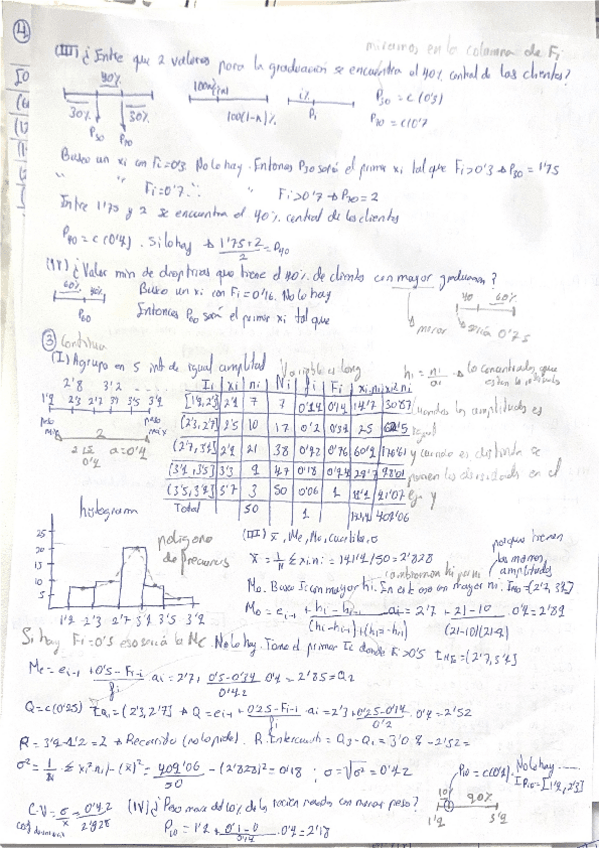 ④
miramos en la columna de Fi
(III) ¿Entre que 2 valores para la graduación se encuentra el 40% central de los clientes?
40%
30% 30%
P30 P70
100(1-α)%
i%
Pi
P30 = c(0'3)
P70 = c(0'7
Busco un xi con Fi=0'3. No lo hay. Entonces P30 será el primer xi tal que Fi>0'3 → P30 = 1'75
" " Fi=0'7 " Fi>0'7 → P70 = 2
Entre 1'75 y 2 se encuentra el 40% central de los clientes
P40 = c(0'4). Si lo hay → 1'75+2/2 = P40
(IV) ¿Valor min de dioptrias que tiene el 40% de clientes con mayor graduación?
60% 40%
P60
Busco un xi con Fi=0'6. No lo hay
Entonces P60 será el primer xi tal que
40 60%
menor
sería 0'75
③ Continua
(I) Agrupo en 5 int de igual amplitud
Variable es long
hi = ni/ai → lo concentrados que están los
2'8 3'2
1'9 2'3 2'7 3'1 3'5 3'9
peso min peso max
2
a=0'4
Ii xi ni Ni fi Fi xi.ni xi2.ni
[1'9,2'3] 2'1 7 7 0'14 0'14 14'7 30'87
(2'3,2'7] 2'5 10 17 0'2 0'34 25 62'5
(2'7,3'1] 2'9 21 38 0'42 0'76 60'9
(3'1,3'5] 3'3 9 47 0'18 0'94 29'7 98'01
(3'5,3'9] 3'7 3 50 0'06 1
Total 50 1 409'06
cuando las amplitudes es igual
y cuando es distinta se ponen las densidades en el eje y
histograma
polígono de frecuencias
25
20
15
10
5
1'9 2'3 2'7 3'1 3'5 3'9
(III) x̄, Me, Mo, cuartiles, σ
x̄ = 1/n Σxi.ni = 141'4/50 = 2'828
porque tienen las mismas amplitudes
Mo. Busco I con mayor hi. En este caso con mayor ni. IMo = (2'7, 3'1]
Mo = ei-1 + hi-hi-1/(hi-hi-1)+(hi-hi+1) ai = 2'7 + 21-10/(21-10)(21-9) 0'4 = 2'89
Si hay Fi=0'5 eso será la Me. No lo hay. Tomo el primer Ii donde Fi>0'5 IMe=(2'7,3'1]
Me = ei-1 + 0'5-Fi-1/fi ai = 2'7+ 0'5-0'34/0'42 0'4 = 2'85 = Q2
Q=c(0'25) IQ1=(2'3,2'7] → Q = ei-1 + 0'25-Fi-1/fi ai = 2'3+ 0'25-0'14/0'2 0'4 = 2'52
R = 3'9-1'9 = 2 → Recorrido (no lo pide). R. Intercuart = Q3-Q1 = 3'08 - 2'52 =
σ² = 1/n Σ xi².ni - (x̄)² = 409'06/50 - (2'828)² = 0'18 ; σ=√σ² = 0'42
P10 = c(0'1). No lo hay
IP10=[1'9,2'3]
C.V = σ/x̄ = 0'42/2'828
(IV) ¿Peso max del 10% de los recien nacidos con menor peso?
P10 = 1'9 + 0'1-0/0'14 0'4 = 2'18
10 90%
1'9 3'9